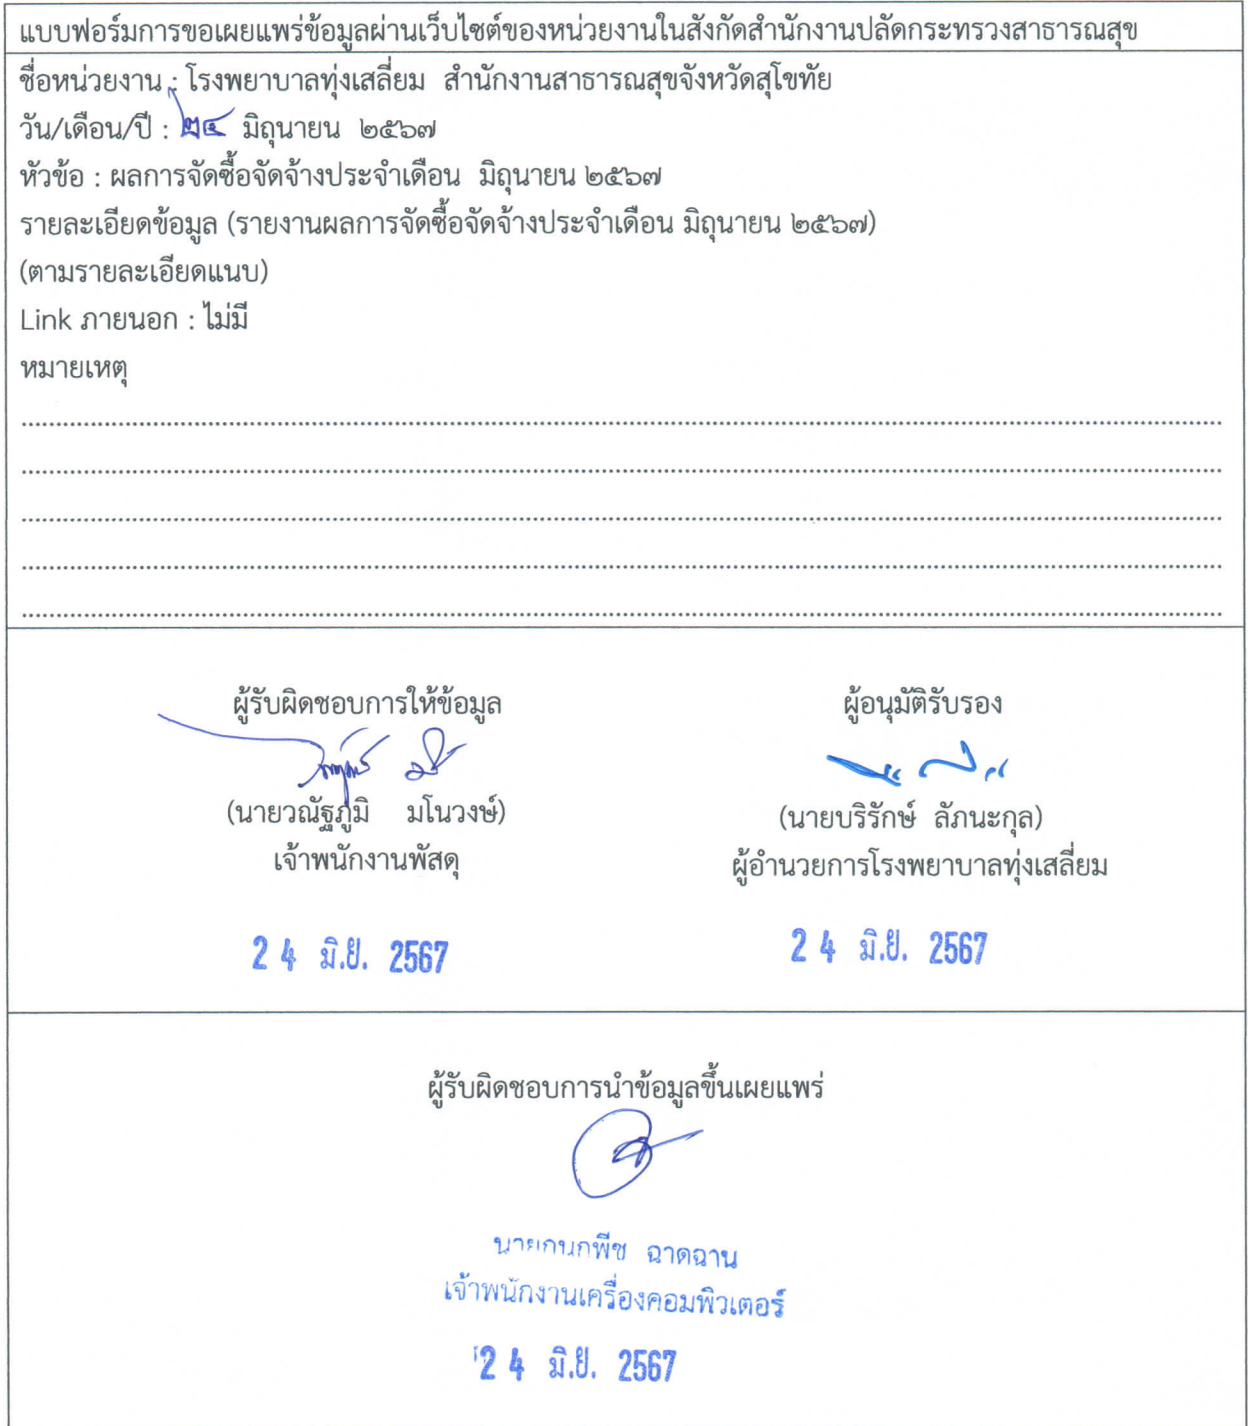 แบบฟอร์มการขอเผยแพร่ข้อมูลผ่านเว็บไซต์ของหน่วยงานในสังกัดสำนักงานปลัดกระทรวงสาธารณสุข
ชื่อหน่วยงาน : โรงพยาบาลทุ่งเสลี่ยม สำนักงานสาธารณสุขจังหวัดสุโขทัย
วัน/เดือน/ปี : ๒๔ มิถุนายน ๒๕๖๗
หัวข้อ : ผลการจัดซื้อจัดจ้างประจำเดือน มิถุนายน ๒๕๖๗
รายละเอียดข้อมูล (รายงานผลการจัดซื้อจัดจ้างประจำเดือน มิถุนายน ๒๕๖๗)
(ตามรายละเอียดแนบ)
Link ภายนอก : ไม่มี
หมายเหตุ
ผู้รับผิดชอบการให้ข้อมูล
(นายวณัฐภูมิ มโนวงษ์)
เจ้าพนักงานพัสดุ
24 มิ.ย. 2567
ผู้อนุมัติรับรอง
(นายบริรักษ์ ลัภนะกุล)
ผู้อำนวยการโรงพยาบาลทุ่งเสลี่ยม
24 มิ.ย. 2567
ผู้รับผิดชอบการนำข้อมูลขึ้นเผยแพร่
นายกนกพีช ฉาดฉาน
เจ้าพนักงานเครื่องคอมพิวเตอร์
24 มิ.ย. 2567